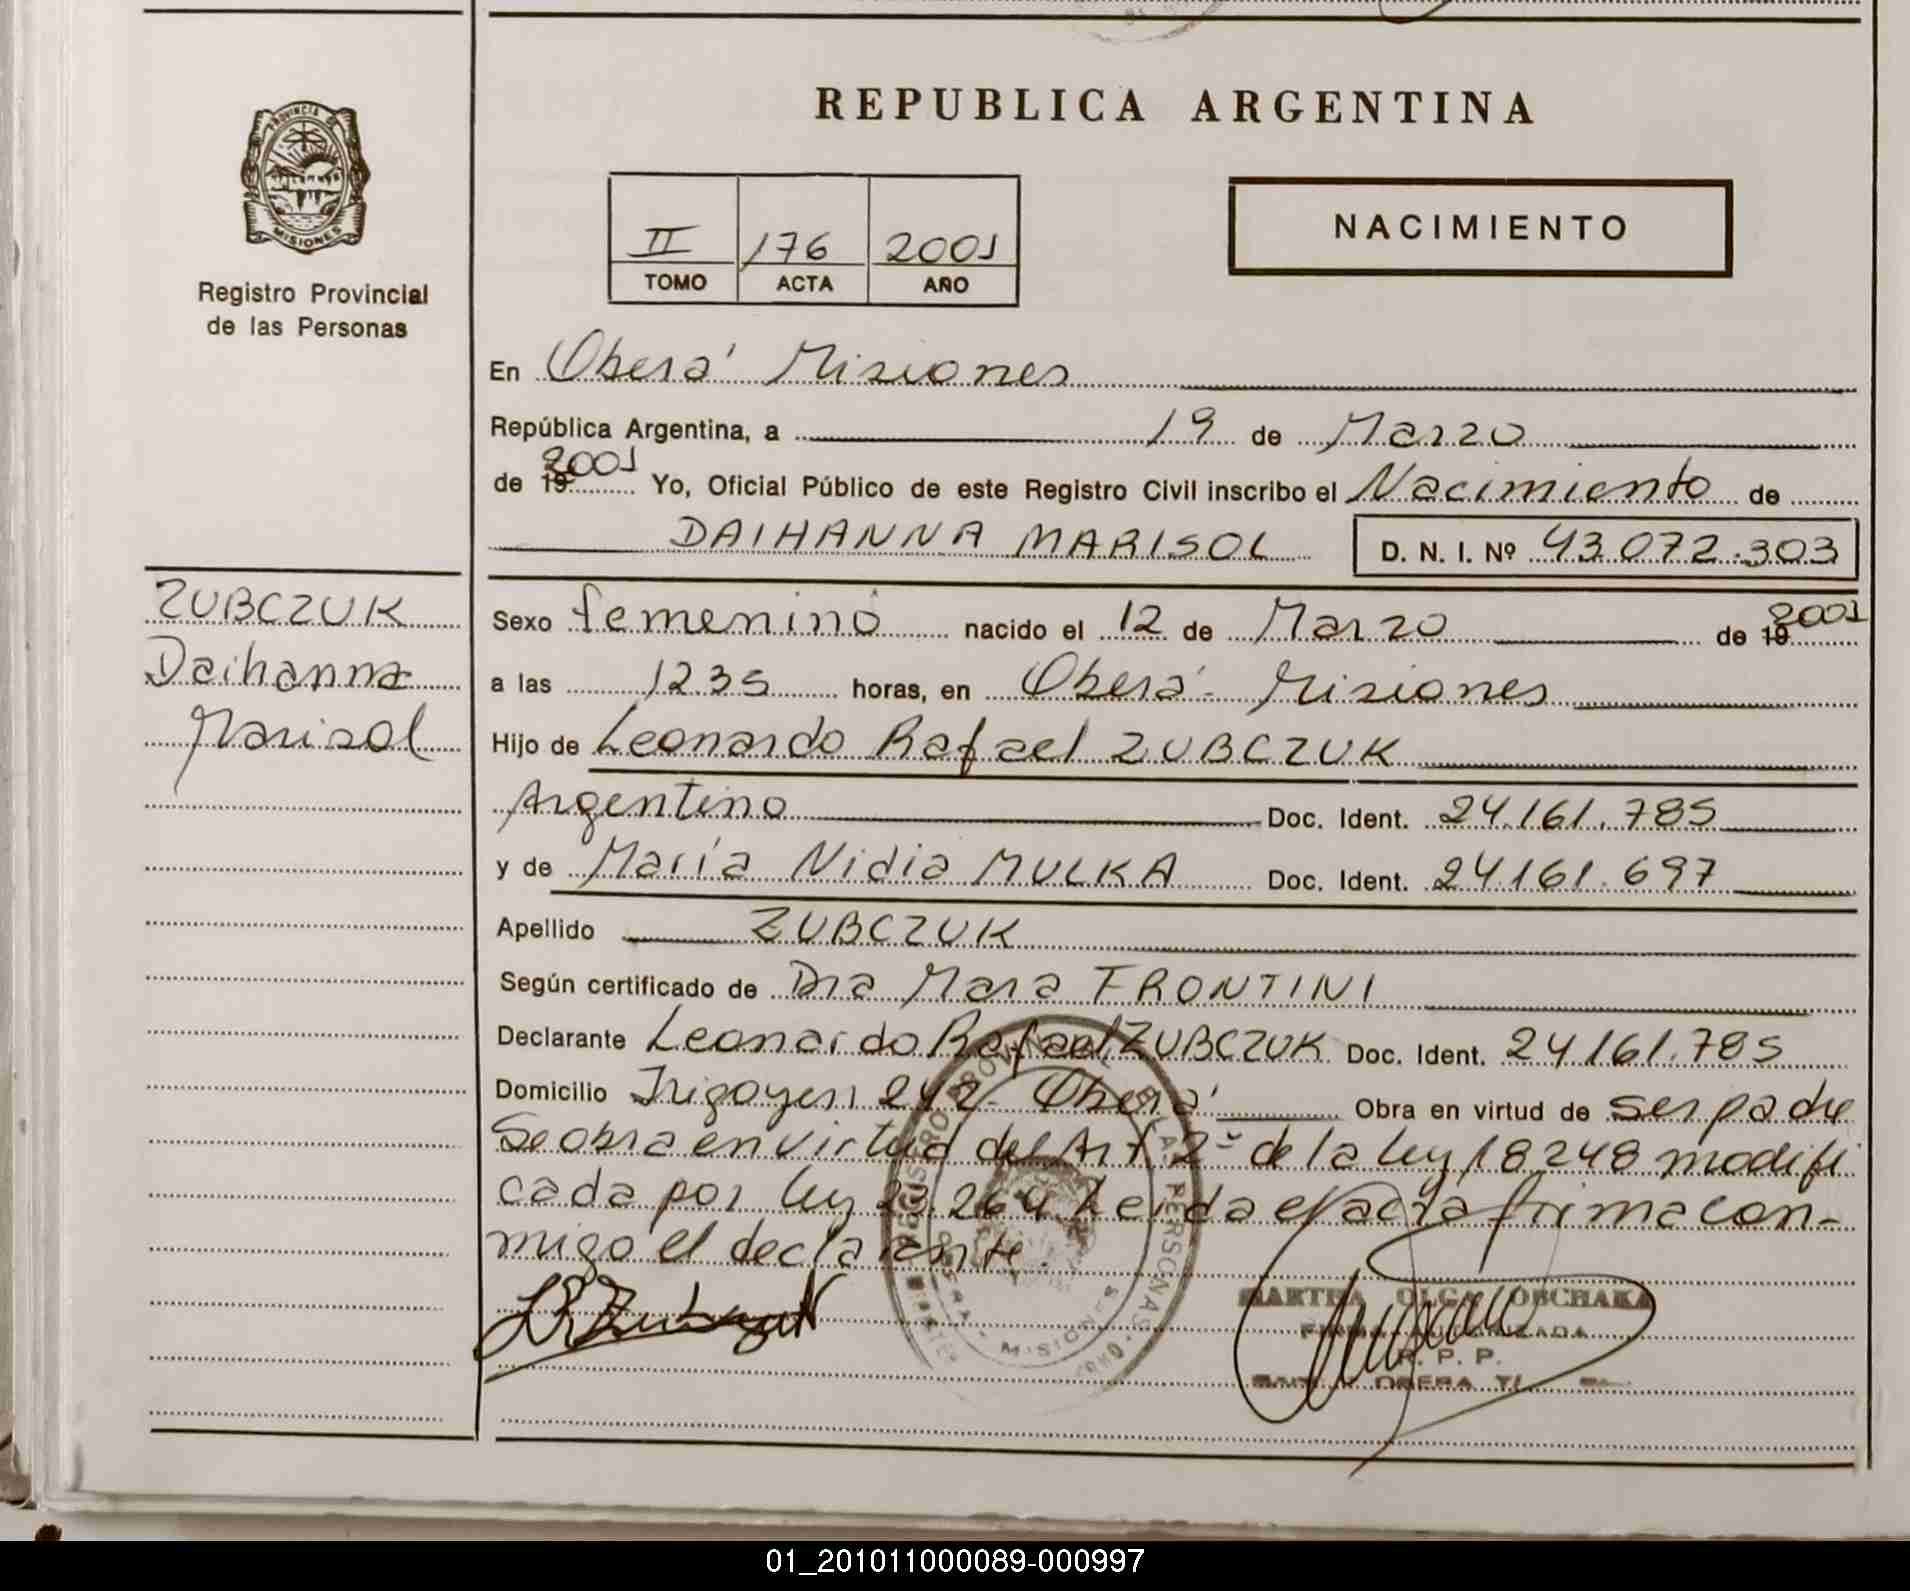 REPUBLICA ARGENTINA
PROVINCIA DE
MISIONES
Registro Provincial
de las Personas
II 176 2001
TOMO ACTA AÑO
NACIMIENTO
En Oberá Misiones
República Argentina, a 19 de Marzo
de 19 2001 Yo, Oficial Público de este Registro Civil inscribo el Nacimiento de
DAIHANNA MARISOL D. N. I. Nº 43.072.303
ZUBCZUK
Daihanna
Marisol
Sexo femenino nacido el 12 de Marzo de 19 2001
a las 1235 horas, en Oberá - Misiones
Hijo de Leonardo Rafael ZUBCZUK
Argentino Doc. Ident. 24.161.785
y de María Nidia MULKA Doc. Ident. 24.161.697
Apellido ZUBCZUK
Según certificado de Dra Mara FRONTINI
Declarante Leonardo Rafael ZUBCZUK Doc. Ident. 24.161.785
Domicilio Irigoyen 242 - Oberá Obra en virtud de ser padre
Se obra en virtud del Art 2º de la ley 18248 modifi
cada por ley 23.264 Leida el acta firma con-
migo el declarante.
REGISTRO PROVINCIAL DE LAS PERSONAS
MISIONES
MARTHA OLGA OBCHAKA
FIRMA AUTORIZADA
R. P. P.
OBERA
01_201011000089-000997